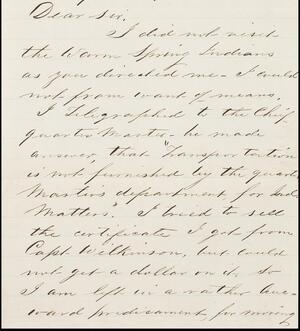 Dear Sir.
I did not visit
the Warm Spring Indians
as you directed me - I could
not from want of means.
I Telegraphed to the Chif
quarter Master - he made
answer, that "Transportation
is not furnished by the quar
Master's department for Ind
Matters." I tried to sell
the certificate I got from
Capt Wilkinson, but could
not get a dollar on it, So
I am left in a rather Auk-
ward predicament for